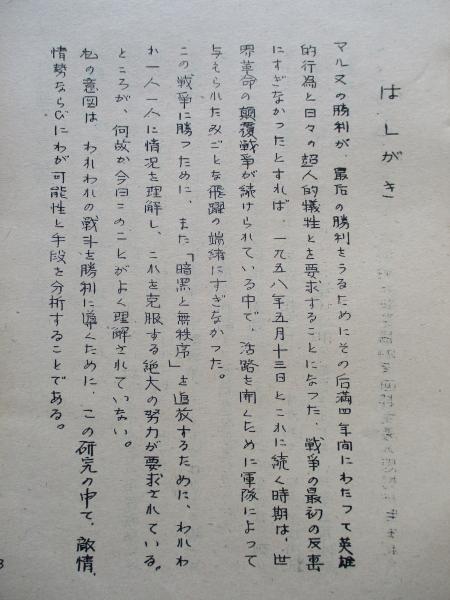 はしがき
マルヌの勝利が、最后の勝利をうるためにその后満四年間にわたって英雄
的行為と日々の超人的犠牲とを要求することになった、戦争の最初の反裏
にすぎなかったとすれば、一九五八年五月十三日とこれに続く時期は、世
界革命の顛覆戦争が続けられている中で、活路を開くために軍隊によって
与えられたみごとな飛躍の端緒にすぎなかった。
この戦争に勝つために、また「暗黒と無秩序」を追放するために、われわ
れ一人一人に情況を理解し、これを克服する絶大の努力が要求されている。
ところが、何故か今日このことがよく理解されていない。
私の意図は、われわれの戦斗を勝利に導くために、この研究の中で、敵情、
情勢ならびにわが可能性と手段を分析することである。
3